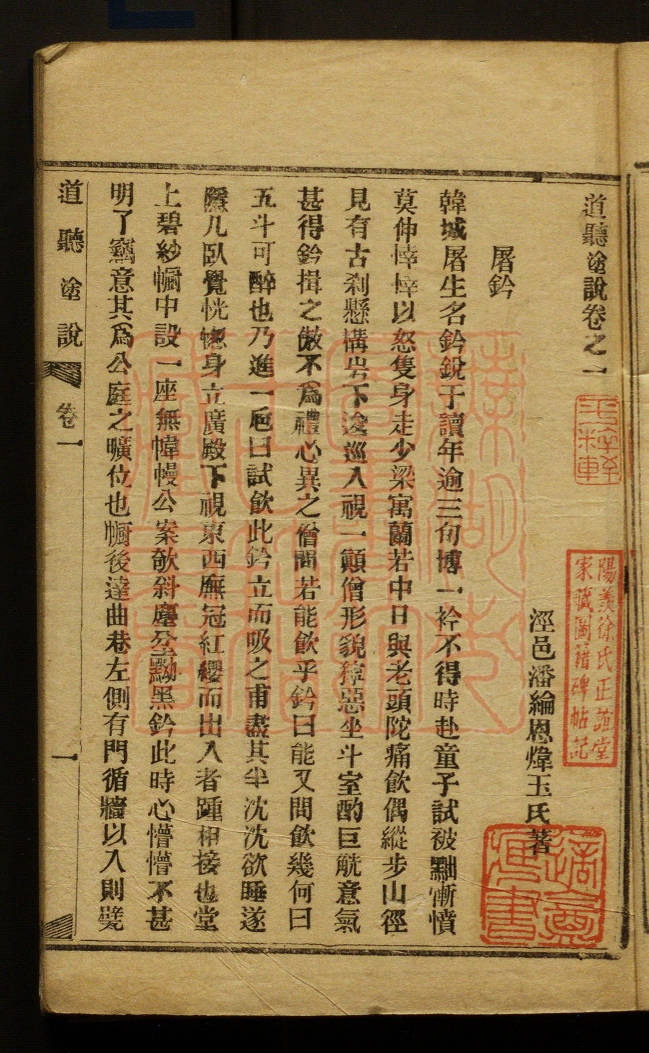 道聽塗說卷之一
涇邑潘綸恩煒玉氏著
屠鈐
韓城屠生名鈐銳于讀年逾三旬博一衿不得時赴童子試被黜慚憤
莫伸悻悻以怒隻身走少梁寓蘭若中日與老頭陀痛飲偶縱步山徑
見有古刹懸構岩下逡巡入視一顛僧形貌獰惡坐斗室酌巨觥意氣
甚得鈐揖之傲不爲禮心異之僧問若能飲乎鈐曰能又問飲幾何曰
五斗可醉也乃進一巵曰試飲此鈐立而吸之甫盡其半沈沈欲睡遂
隱几臥覺恍惚身立廣殿下視東西廡冠紅纓而出入者踵相接也堂
上碧紗幮中設一座無幃幔公案欹斜塵坌黝黑鈐此時心懵懵不甚
明了竊意其爲公庭之曠位也幮後達曲巷左側有門循牆以入則甓
道聽塗說
卷一
一
陽羨徐氏正誼堂
家藏圖籍碑帖記